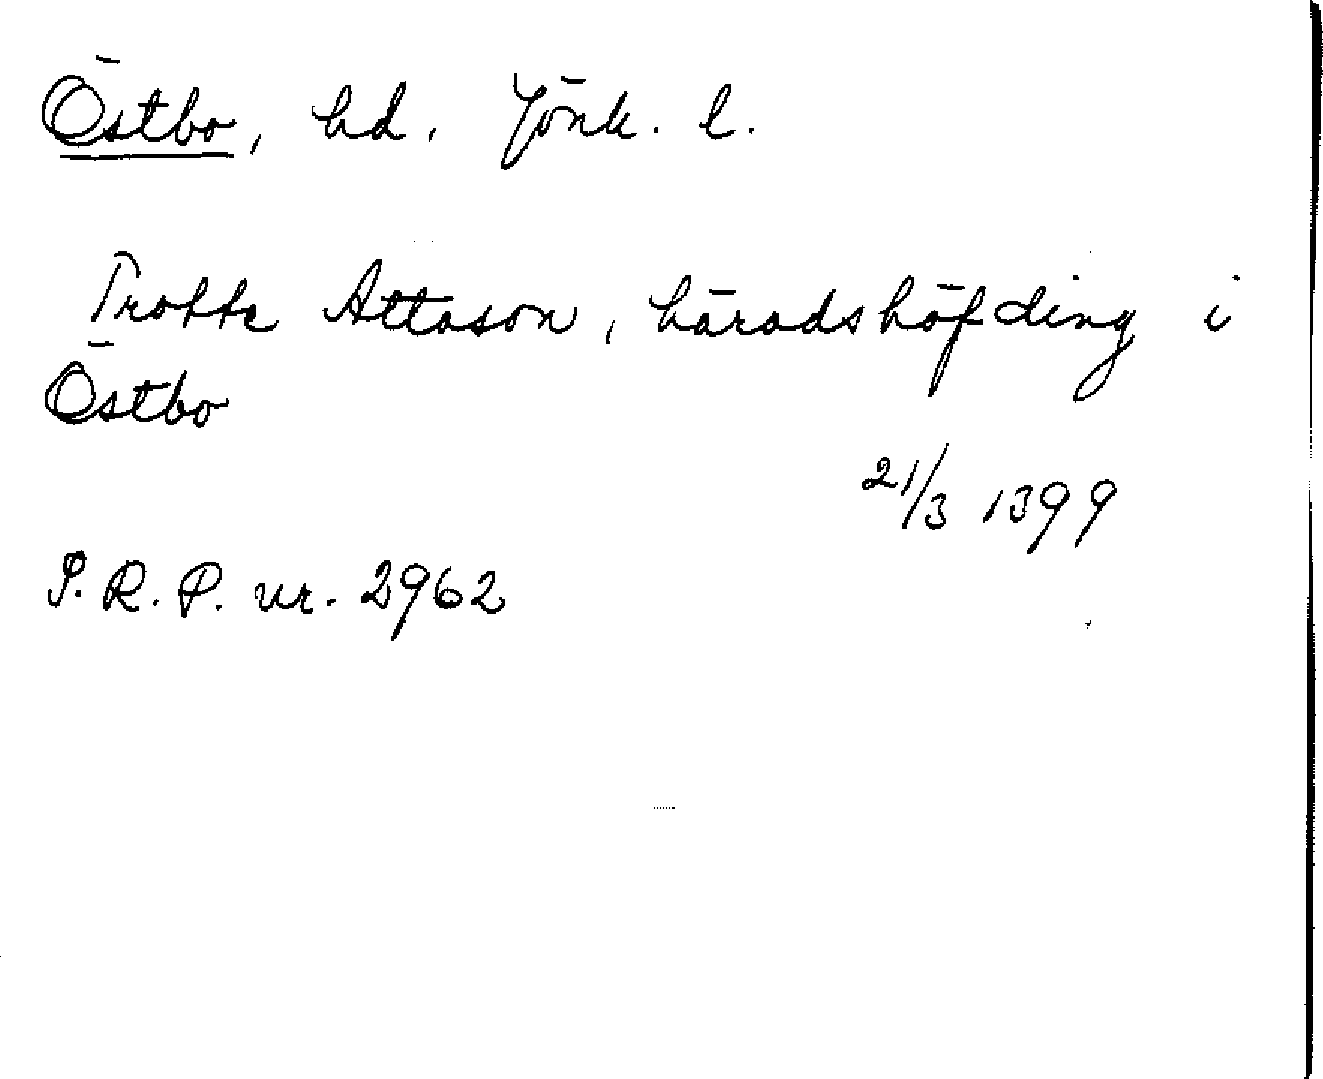 Östbo, hd. Jönk. l.
Trotte Attason, häradshöfding i
Östbo
21/3 1399
S.R.P. nr. 2962